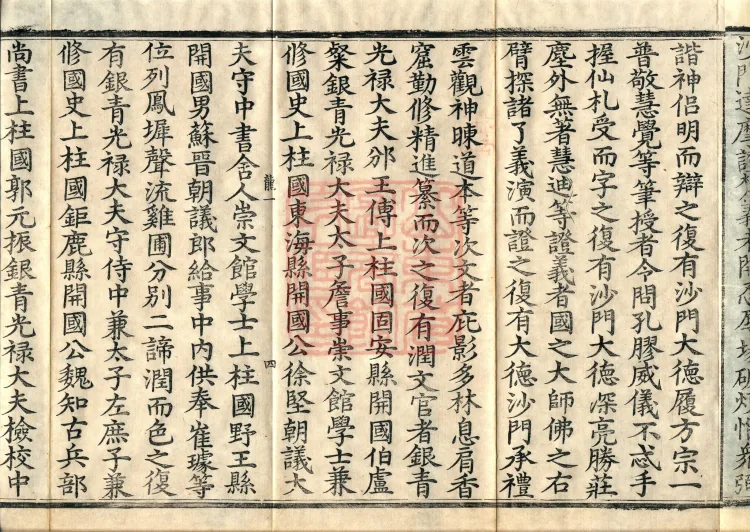 諧神侣明而辯之復有沙門大德履方宗一
普敬慧覺等筆授者令問孔膠威儀不忒手
握仙札受而字之復有沙門大德深亮勝莊
塵外無著慧迪等證義者國之大師佛之右
臂探諸了義演而證之復有大德沙門承禮
雲觀神暕道本等次文者庇影多林息肩香
窟勤修精進纂而次之復有潤文官者銀青
光祿大夫邠王傅上柱國固安縣開國伯盧
粲銀青光祿大夫太子詹事崇文館學士兼
修國史上柱國東海縣開國公徐堅朝議大
龍一 四
夫守中書舍人崇文館學士上柱國野王縣
開國男蘇晉朝議郎給事中内供奉崔璩等
位列鳳墀聲流雞圃分別二諦潤而色之復
有銀青光祿大夫守侍中兼太子左庶子兼
修國史上柱國鉅鹿縣開國公魏知古兵部
尚書上柱國郭元振銀青光祿大夫檢校中